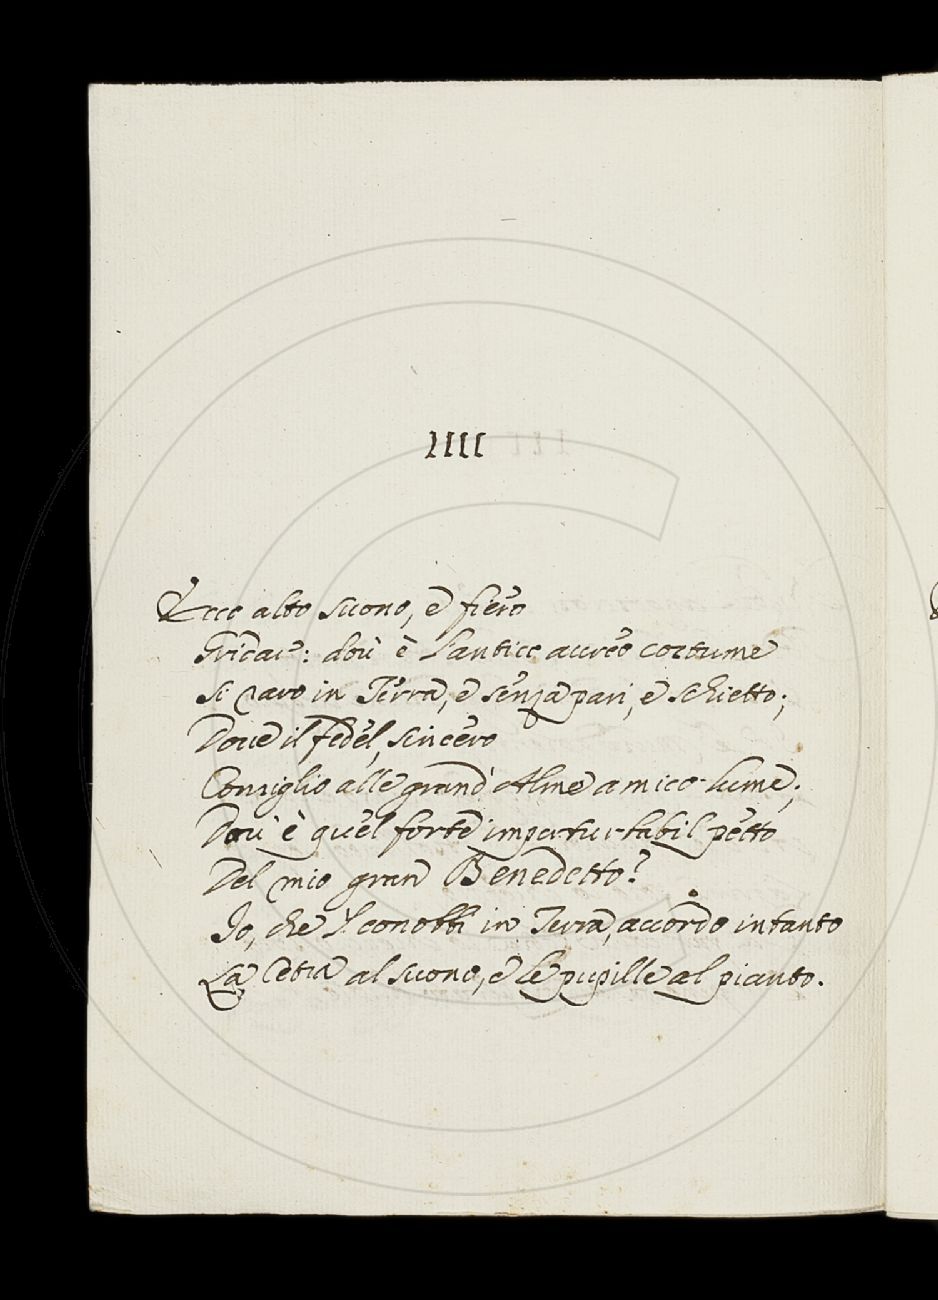 IIII
Ecco alto suono, e fiero
Gridar: dov' è l'antico aureo costume
Sì raro in Terra, e senza pari, e schietto;
Dove il fedel, sincero
Consiglio alle grand' Alme amico lume;
Dov' è quel forte imperturbabil petto
Del mio gran Benedetto?
Io, che 'l conobbi in Terra, accordo intanto
La Cetra al suono, e le pupille al pianto.